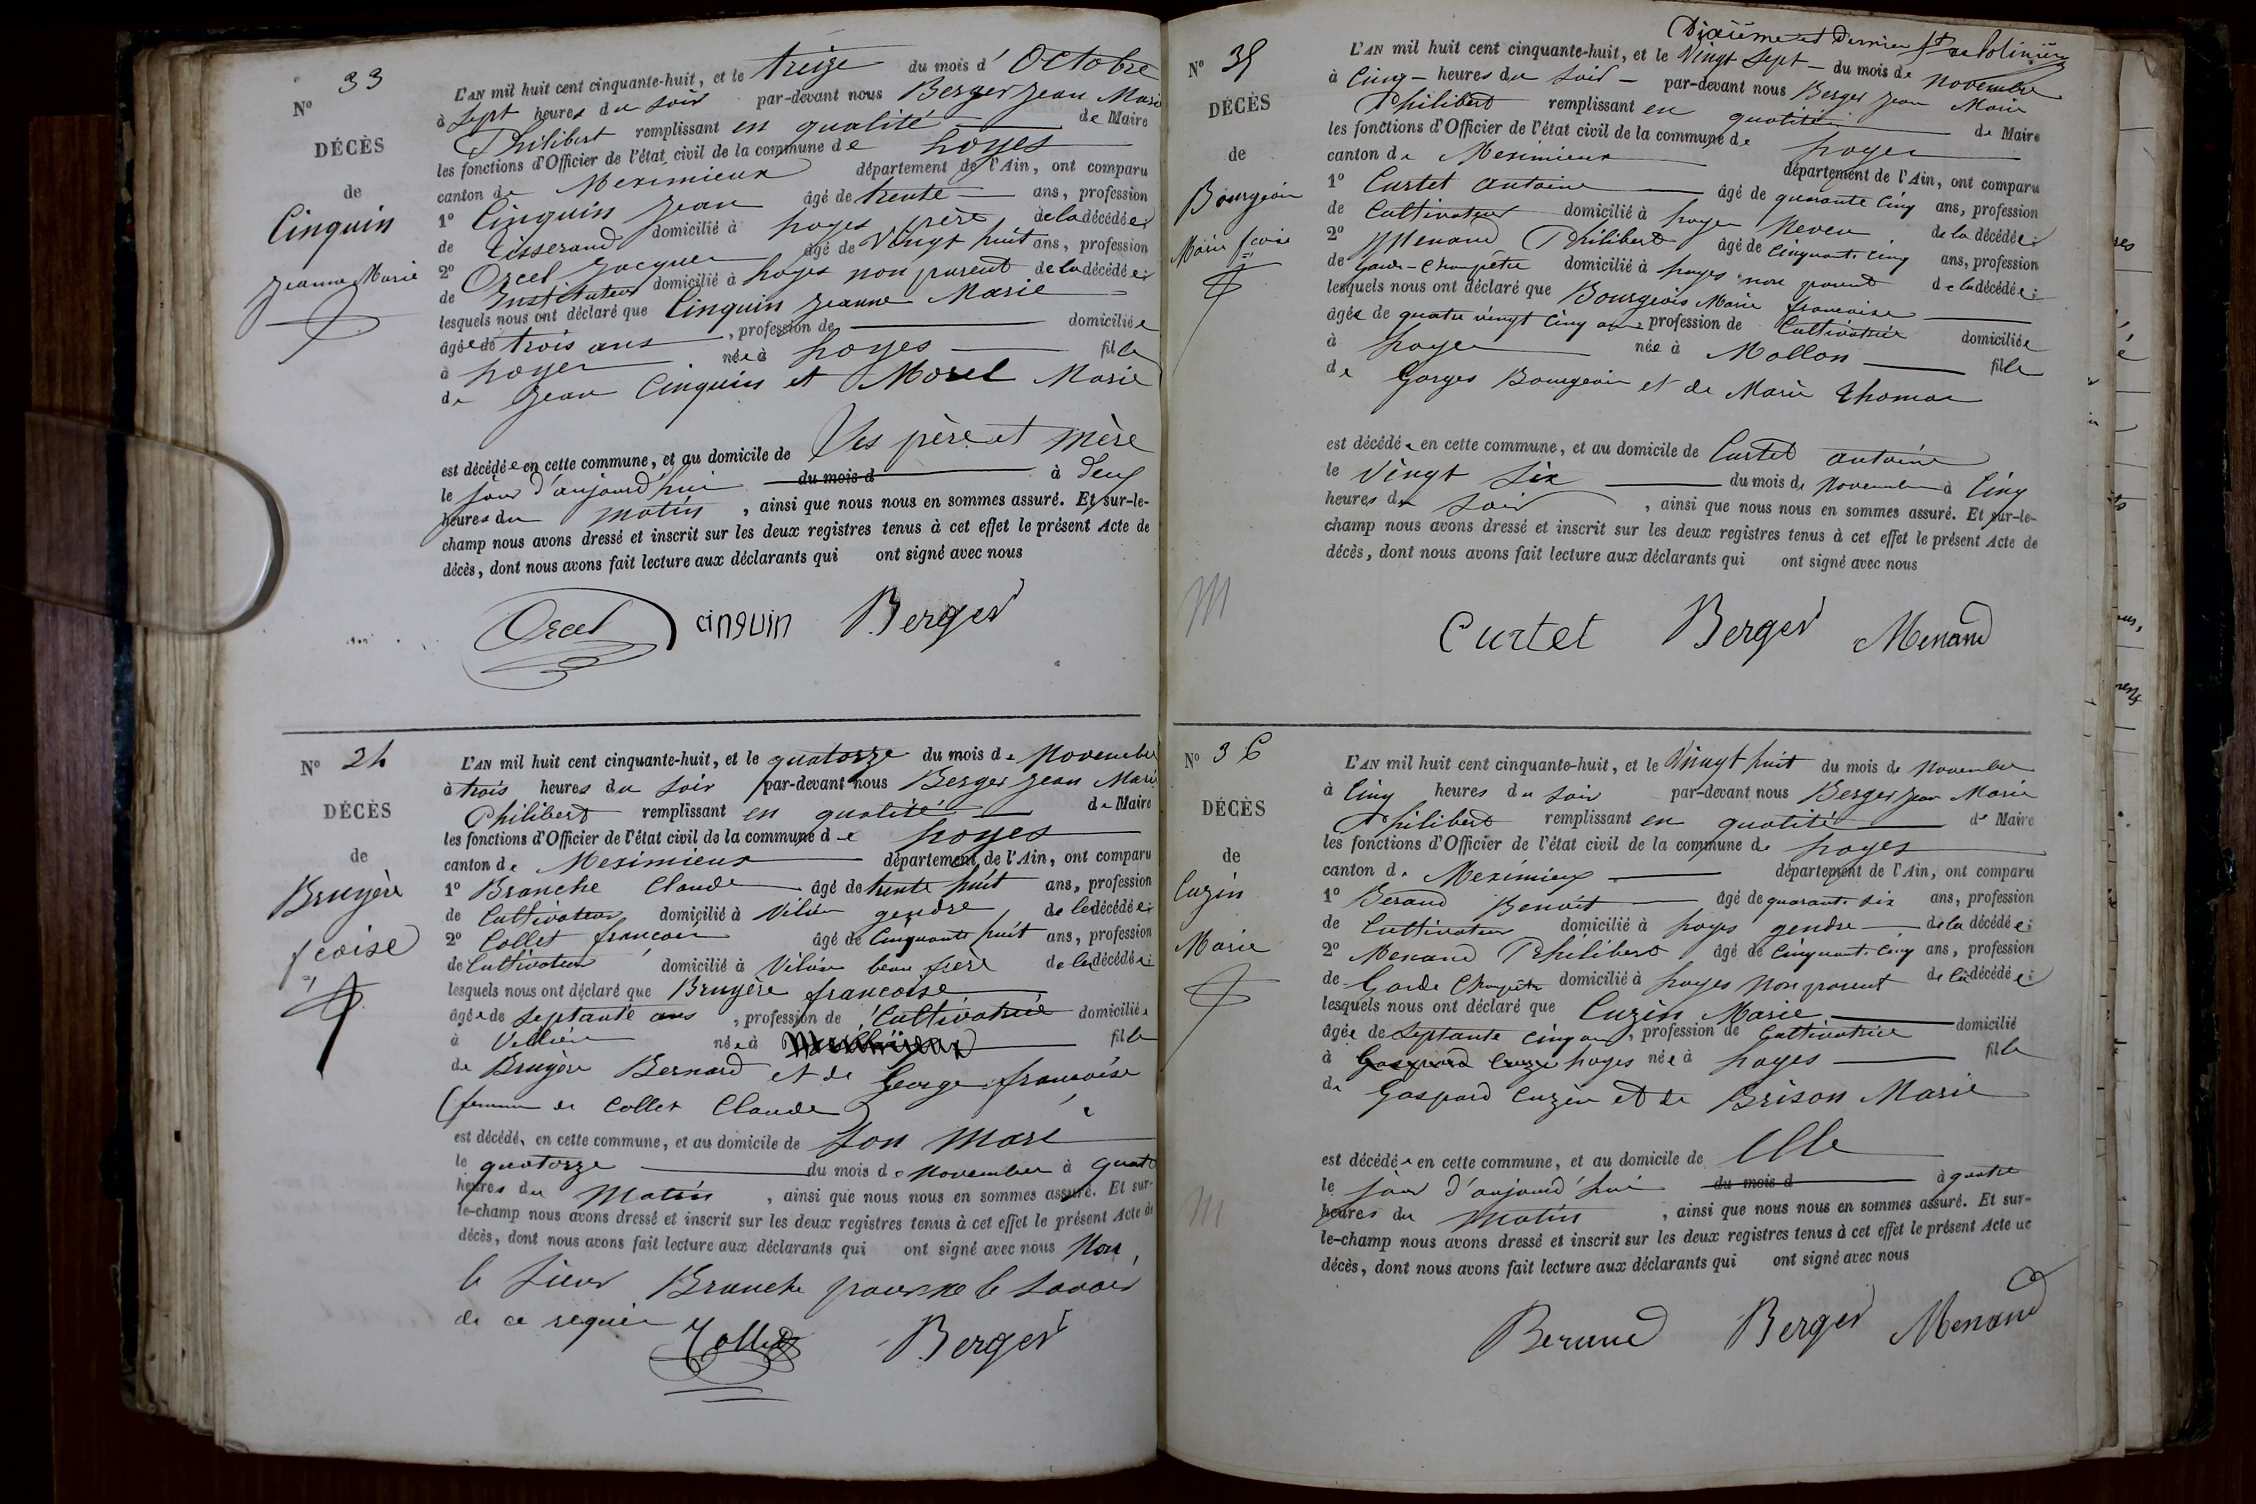 N° 33
DÉCÈS
de
Cinquin
Jeanne Marie
L'AN mil huit cent cinquante-huit, et le treize du mois d' Octobre
à sept heures du soir par-devant nous Berger Jean Marie
Philibert remplissant en qualité de Maire
les fonctions d'Officier de l'état civil de la commune de Loyes
canton de Meximieux département de l'Ain, ont comparu
1° Cinquin Jean âgé de trente ans, profession
de Tisserand domicilié à Loyes père de la décédée;
2° Orcel Jacques âgé de Vingt huit ans, profession
de Instituteur domicilié à Loyes non parent de la décédée;
lesquels nous ont déclaré que Cinquin Jeanne Marie
âgée de trois ans, profession de domiciliée
à Loyes née à Loyes fille
de Jean Cinquin et Morel Marie
est décédée en cette commune, et au domicile de Ses père et mère
le jour d'aujourd'hui du mois d à deux
heures du matin, ainsi que nous nous en sommes assuré. Et sur-le-
champ nous avons dressé et inscrit sur les deux registres tenus à cet effet le présent Acte de
décès, dont nous avons fait lecture aux déclarants qui ont signé avec nous
Orcel cinquin Berger
N° 34
DÉCÈS
de
Bruyère
fcoise
L'AN mil huit cent cinquante-huit, et le quatorze du mois de Novembre
à trois heures du soir par-devant nous Berger Jean Marie
Philibert remplissant en qualité de Maire
les fonctions d'Officier de l'état civil de la commune de Loyes
canton de Meximieux département de l'Ain, ont comparu
1° Branche Claude âgé de trente huit ans, profession
de Cultivateur domicilié à gendre de la décédée;
2° Collet françois âgé de Cinquante huit ans, profession
de Cultivateur domicilié à beau frère de la décédée;
lesquels nous ont déclaré que Bruyère francoise
âgée de septante ans, profession de Cultivatrice domiciliée
à née à fille
de Bruyère Bernard et de George francoise
(femme de Collet Claude)
est décédée en cette commune, et au domicile de son mari
le quatorze du mois de Novembre à quatre
heures du matin, ainsi que nous nous en sommes assuré. Et sur-
le-champ nous avons dressé et inscrit sur les deux registres tenus à cet effet le présent Acte de
décès, dont nous avons fait lecture aux déclarants qui ont signé avec nous Non
le sieur Branche pour ne le savoir
de ce requis
Collet Berger
Dixième et dernier
N° 35
DÉCÈS
de
Bourgeois
Marie fcoise
L'AN mil huit cent cinquante-huit, et le Vingt Sept du mois de Novembre
à Cinq heures du soir par-devant nous Berger Jean Marie
Philibert remplissant en qualité de Maire
les fonctions d'Officier de l'état civil de la commune de Loyes
canton de Meximieux département de l'Ain, ont comparu
1° Curtet Antoine âgé de quarante Cinq ans, profession
de Cultivateur domicilié à Loyes Neveu de la décédée;
2° Menand Philibert âgé de Cinquante Cinq ans, profession
de Garde-Champêtre domicilié à Loyes non parent de la décédée;
lesquels nous ont déclaré que Bourgeois Marie francoise
âgée de quatre vingt cinq ans profession de Cultivatrice domiciliée
à Loyes née à Mollon fille
de Gorges Bourgeois et de Marie Thomas
est décédée en cette commune, et au domicile de Curtet Antoine
le Vingt Six du mois de Novembre à Cinq
heures du soir, ainsi que nous nous en sommes assuré. Et sur-le-
champ nous avons dressé et inscrit sur les deux registres tenus à cet effet le présent Acte de
décès, dont nous avons fait lecture aux déclarants qui ont signé avec nous
Curtet Berger Menand
N° 36
DÉCÈS
de
Cuzin
Marie
L'AN mil huit cent cinquante-huit, et le Vingt huit du mois de Novembre
à Cinq heures du soir par-devant nous Berger Jean Marie
Philibert remplissant en qualité de Maire
les fonctions d'Officier de l'état civil de la commune de Loyes
canton de Meximieux département de l'Ain, ont comparu
1° Beraud Benoit âgé de quarante six ans, profession
de Cultivateur domicilié à Loyes gendre de la décédée;
2° Menand Philibert âgé de Cinquante Cinq ans, profession
de Garde Champêtre domicilié à Loyes Non parent de la décédée;
lesquels nous ont déclaré que Cuzin Marie
âgée de septante cinq ans, profession de Cultivatrice domicilié
à Gaspard Cuzin Loyes née à Loyes fille
de Gaspard Cuzin et de Brison Marie
est décédée en cette commune, et au domicile de Elle
le jour d'aujourd'hui du mois d à quatre
heures du matin, ainsi que nous nous en sommes assuré. Et sur-
le-champ nous avons dressé et inscrit sur les deux registres tenus à cet effet le présent Acte de
décès, dont nous avons fait lecture aux déclarants qui ont signé avec nous
Beraud Berger Menand